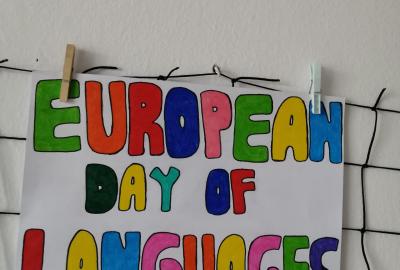 EUROPEAN
DAY OF
LANGUAGES